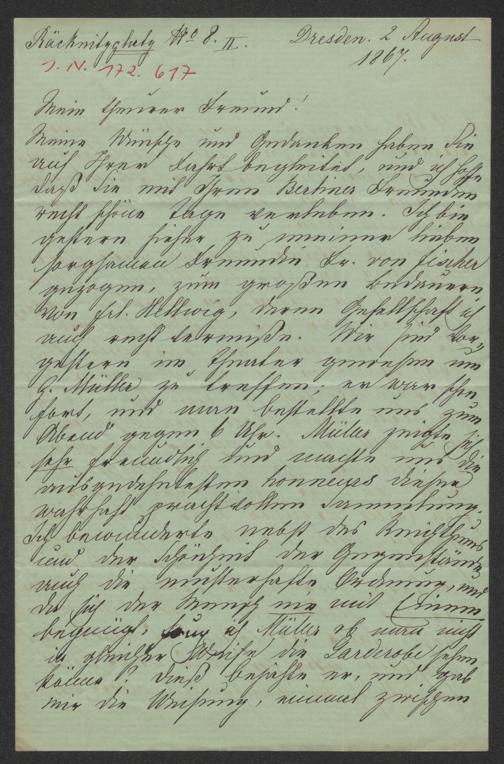 Räcknitzplatz No 8. II. Dresden. 2 August
1867.
J. N. 172. 617
Mein theurer Freund!
Meine Wünsche und Gedanken haben Sie
auf Ihrer Fahrt begleitet, und ich hoffe
daß Sie mit Ihren Berliner Freunden
recht schöne Tage verleben. Ich bin
gestern hieher zu meiner lieben
sorgsamen Freundin Fr. von Fischer
gezogen, zum großen Bedauern
von Frl. Hellwig, deren Gesellschaft ich
auch recht vermiße. Wir sind vor-
gestern im Theater gewesen um
H. Müller zu treffen; er war schon
fort, und man bestellte uns zum
Abend gegen 6 Uhr. Müller zeigte sich
sehr freundlich und machte uns die
ausgedehntesten honneurs dieser
wahrhaft prachtvollen Sammlung.
Ich bewunderte nebst des Reichthums
und der Schönheit der Gegenstände
auch die musterhafte Ordnung, und
da sich der Mensch nie mit Einem
begnügt, frug ich Müller ob man nicht
in gleicher Weise die Garderobe sehen
könne? Dieß bejahte er, und gab
mir die Weisung, einmal zwischen